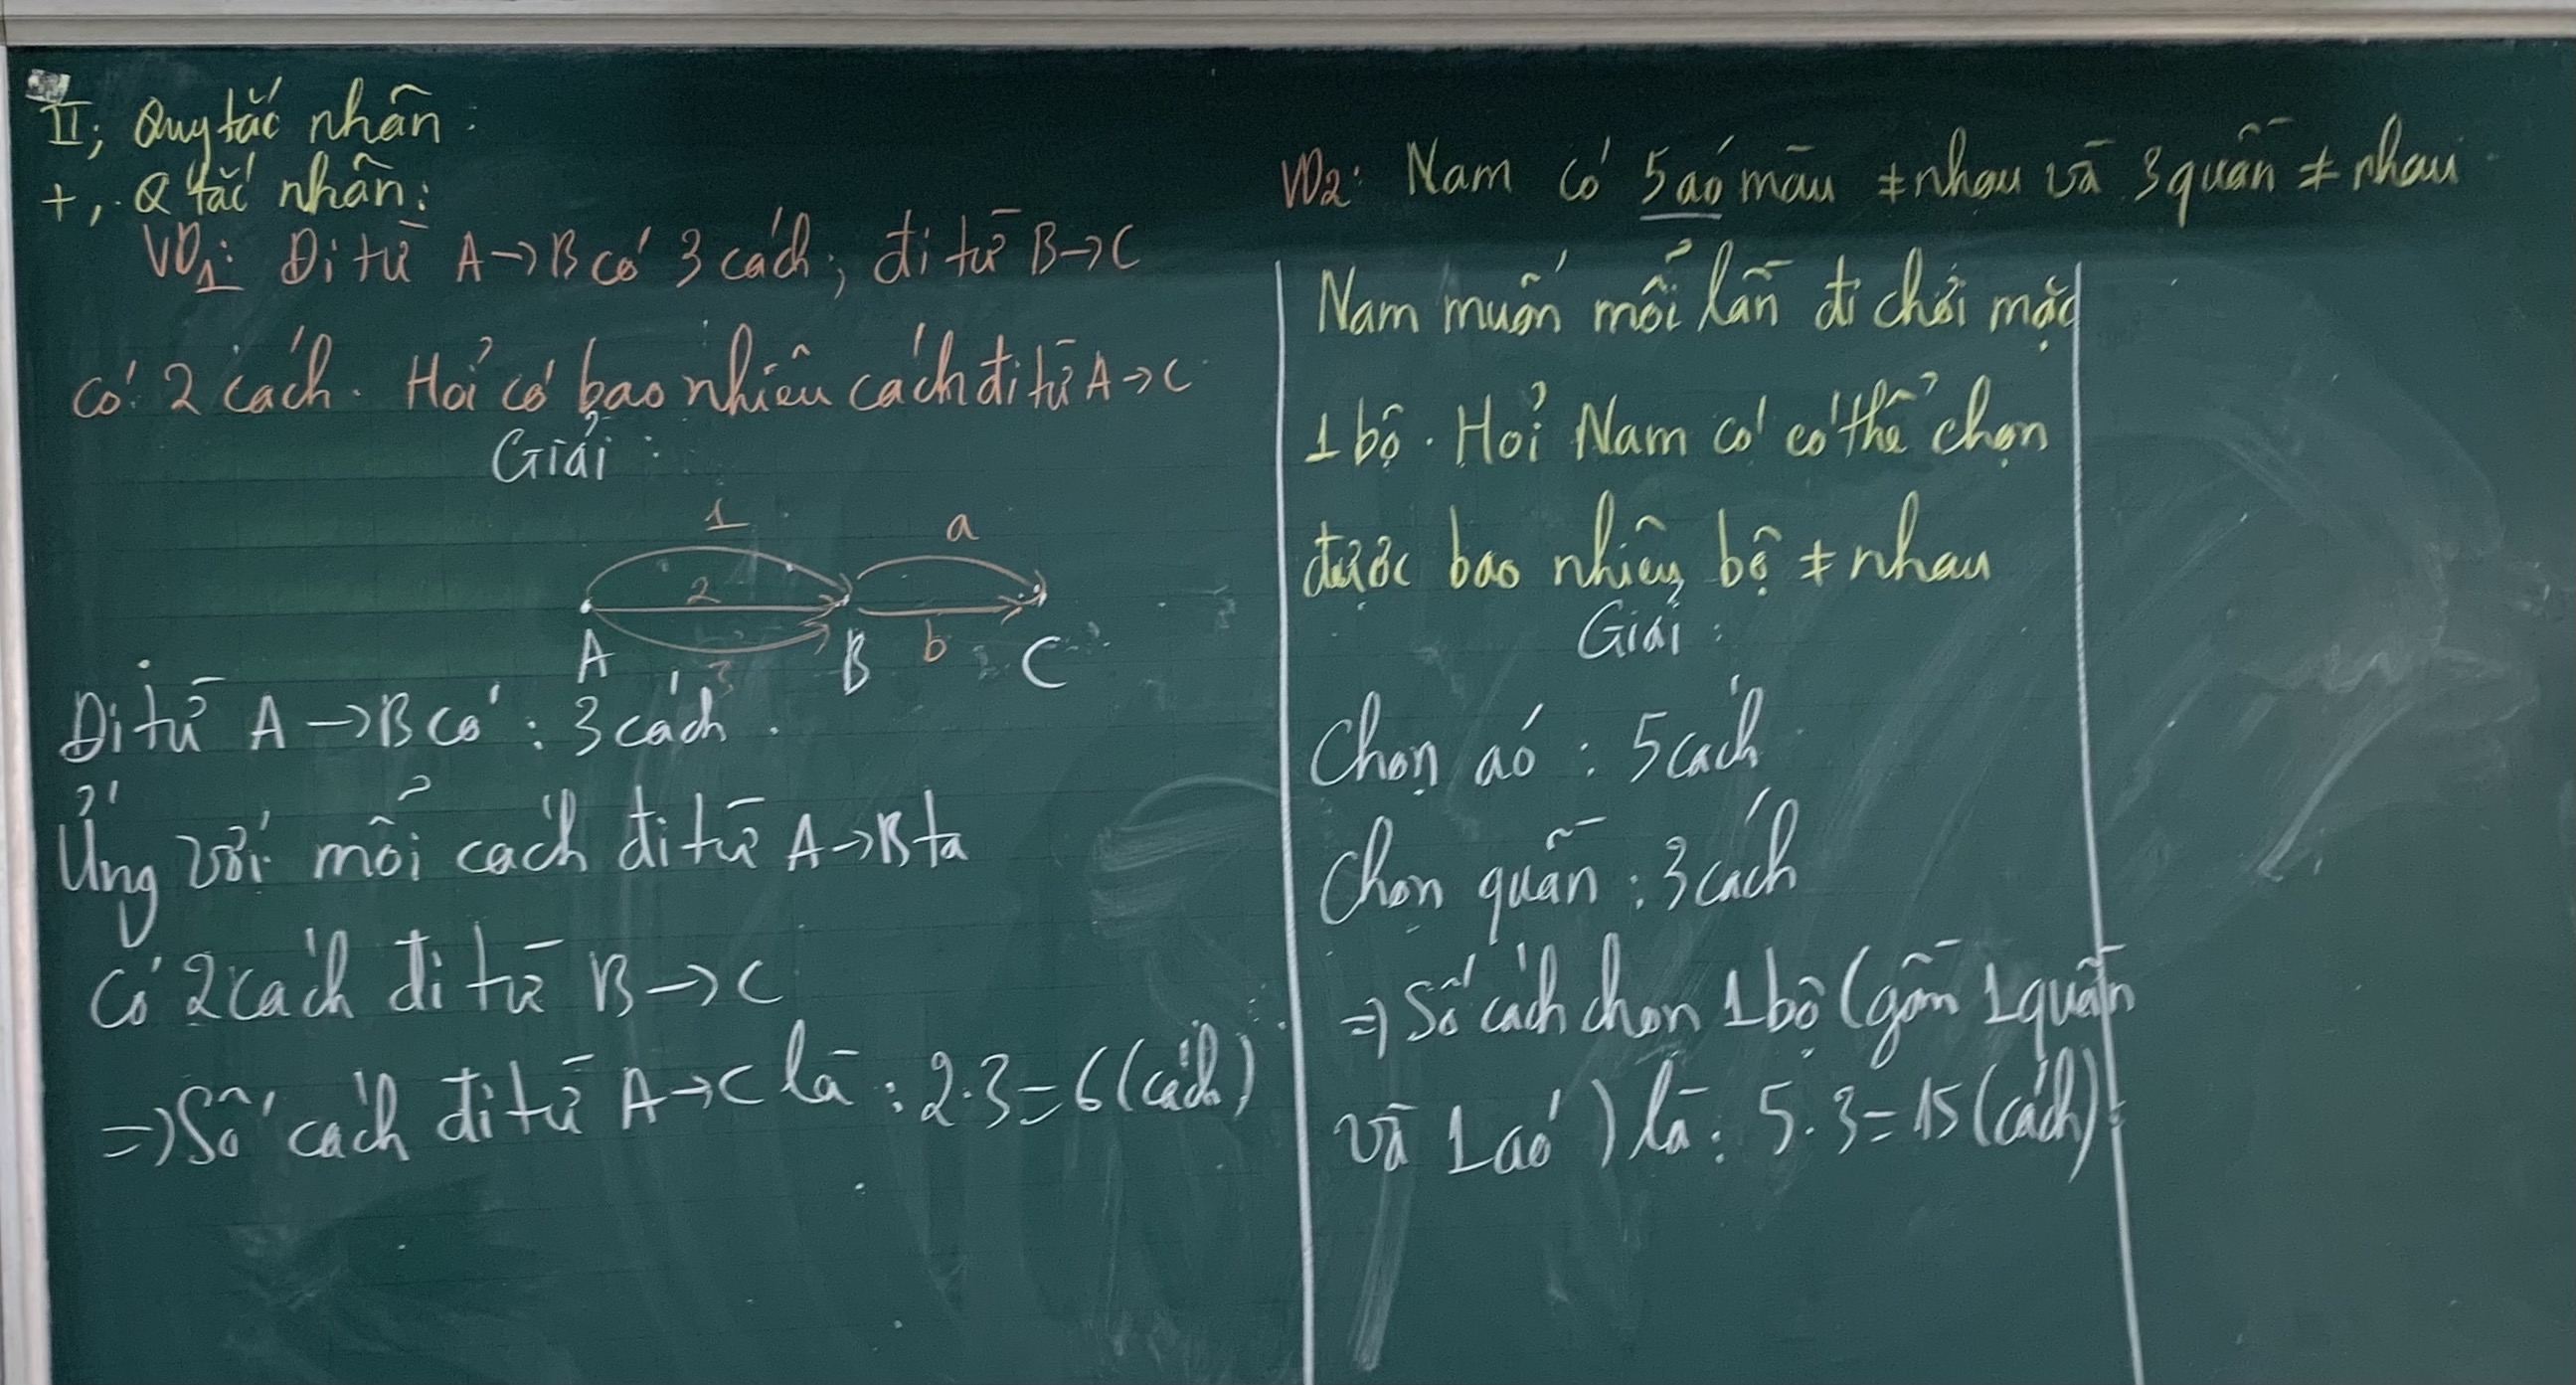 II; Quy tắc nhân.
+, Q tắc nhân:
VD1: Đi từ A→B có 3 cách; đi từ B→C
có 2 cách. Hỏi có bao nhiêu cách đi từ A→C
Giải:
1
a
2
A
3
B
b
C
Đi từ A→B có: 3 cách.
Ứng với mỗi cách đi từ A→B ta
có 2 cách đi từ B→C
=> Số cách đi từ A→C là: 2.3=6 (cách)
VD2: Nam có 5 áo màu ≠ nhau và 3 quần ≠ nhau
Nam muốn mỗi lần đi chơi mặc
1 bộ. Hỏi Nam có có thể chọn
được bao nhiêu bộ ≠ nhau
Giải:
Chọn áo: 5 cách
Chọn quần: 3 cách
=> Số cách chọn 1 bộ (gồm 1 quần
và 1 áo) là: 5.3=15 (cách)